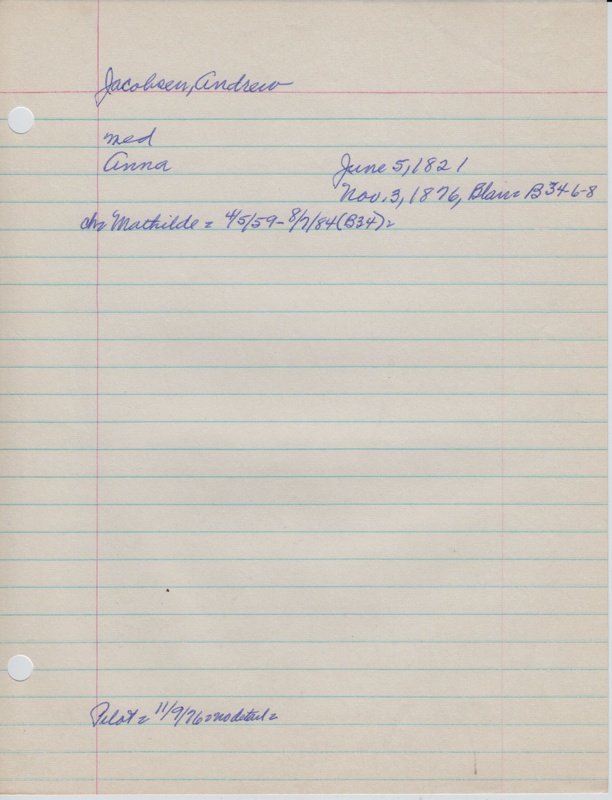 Jacobsen, Andrew
med
Anna June 5, 1821
Nov. 3, 1876, Blair = B346-8
ch = Mathilde = 4/5/59 - 8/7/84 (B34) =
Pilot = 11/9/76 = no detail =